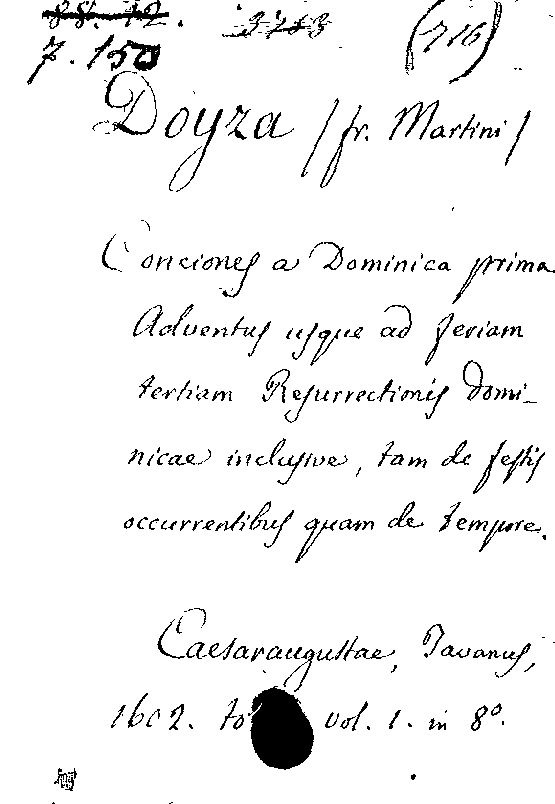 88. 12. 3713 (716)
7. 150
Doyza / fr. Martini /
Conciones a Dominica prima
Adventus usque ad feriam
tertiam Resurrectionis Domi-
nicae inclusive, tam de festis
occurrentibus quam de tempore.
Caesaraugustae, Tavanus,
1602. to vol. 1. in 8º.